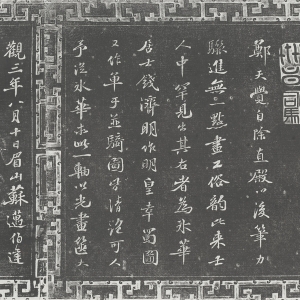 鄭天覺自除直殿以後筆力
驟進無一點畫工俗韵比來士
人中罕見出其右者為冰華
居士錢濟明作明皇幸蜀圖
又作單于並騎圖皆清潤可人
予從冰華求此一軸以光畫篋
觀三年八月十日眉山蘇邁伯達